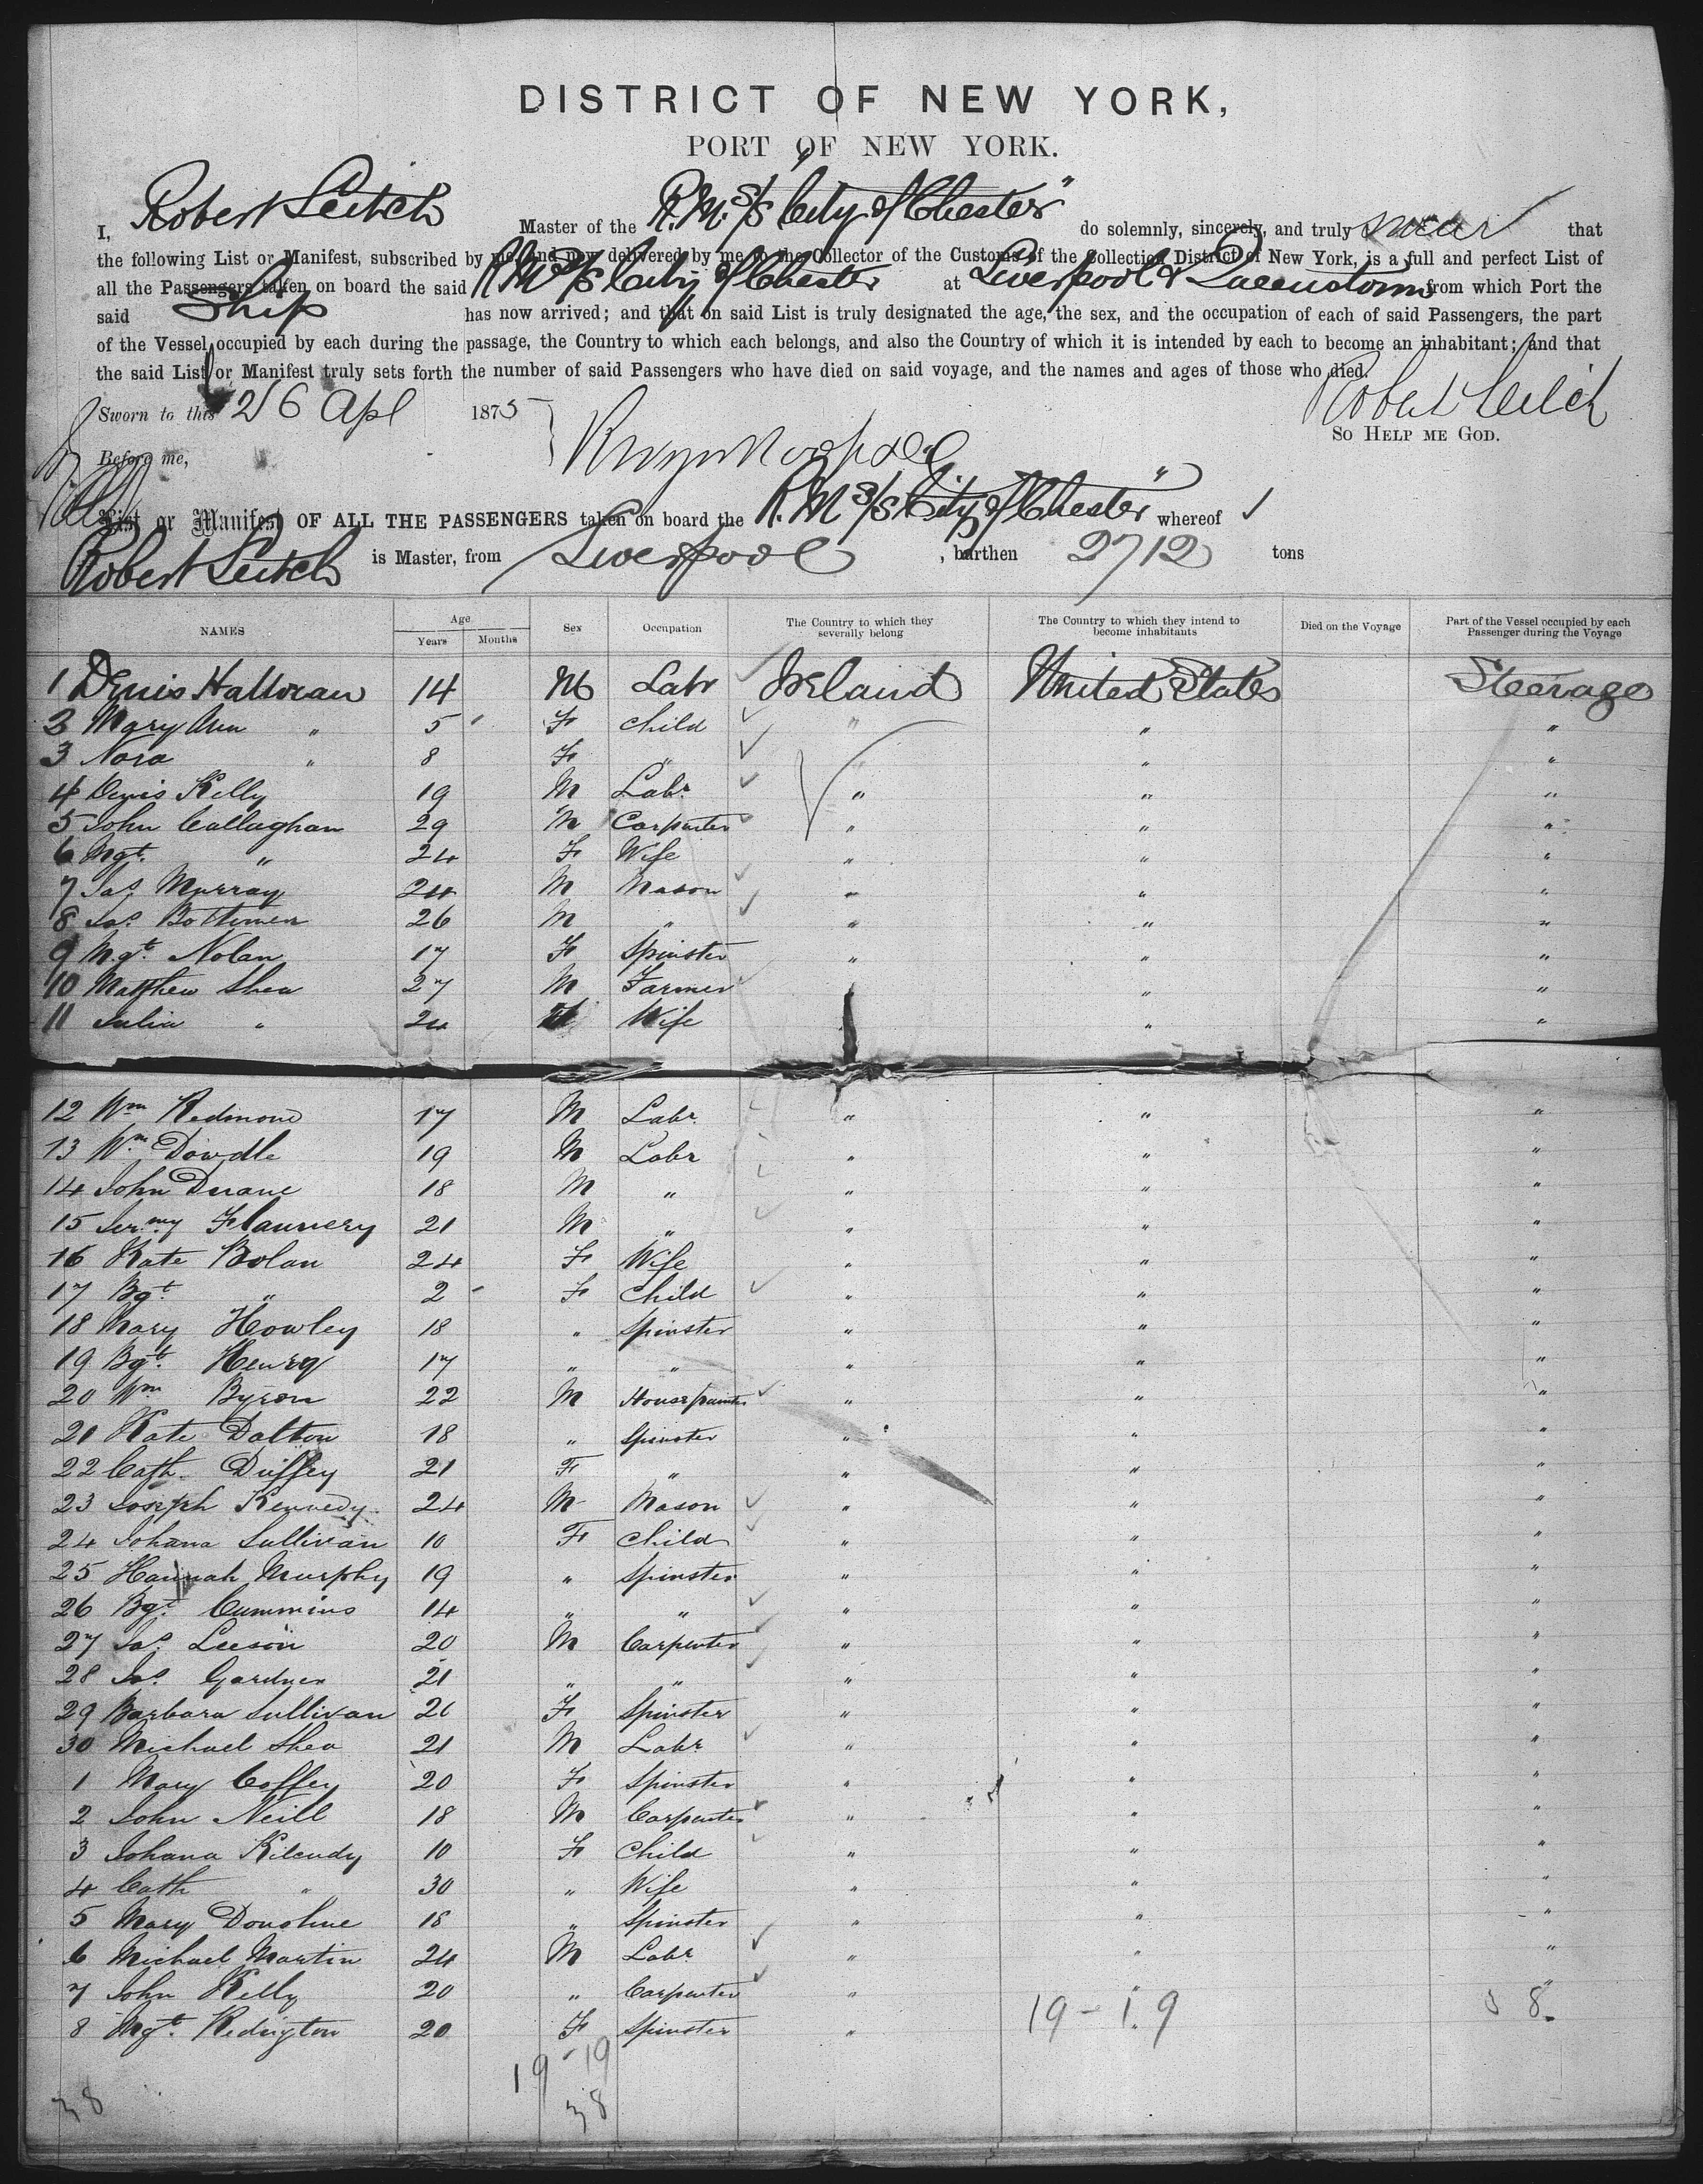 DISTRICT OF NEW YORK,
PORT OF NEW YORK.
I, Robert Leitch Master of the R.M. S/S "City of Chester" do solemnly, sincerely, and truly swear that
the following List or Manifest, subscribed by me and now delivered by me to the Collector of the Customs of the Collection District of New York, is a full and perfect List of
all the Passengers taken on board the said R.M. S/S City of Chester at Liverpool & Queenstown from which Port the
said Ship has now arrived; and that on said List is truly designated the age, the sex, and the occupation of each of said Passengers, the part
of the Vessel occupied by each during the passage, the Country to which each belongs, and also the Country of which it is intended by each to become an inhabitant; and that
the said List or Manifest truly sets forth the number of said Passengers who have died on said voyage, and the names and ages of those who died.
Sworn to this 26 Apl 1875 Robert Leitch
SO HELP ME GOD.
Before me,
List or Manifest OF ALL THE PASSENGERS taken on board the R.M. S/S "City of Chester" whereof
Robert Leitch is Master, from Liverpool , burthen 2712 tons
NAMES Age Years Months Sex Occupation The Country to which they severally belong The Country to which they intend to become inhabitants Died on the Voyage Part of the Vessel occupied by each Passenger during the Voyage
1 Denis Halloran 14 M Labr Ireland United States Steerage
2 Mary Ann " 5 F Child " " "
3 Nora " 8 F " " " "
4 Denis Kelly 19 M Labr " " "
5 John Callaghan 29 M Carpenter " " "
6 Mgt. " 24 F Wife " " "
7 Jas Murray 24 M Mason " " "
8 Jas. 26 M " " " "
9 Mgt. Nolan 17 F Spinster " " "
10 Matthew Shea 27 M Farmer " "
11 Julia " 24 F Wife " "
12 Wm Redmond 17 M Labr " " "
13 Wm Dowdle 19 M Labr " " "
14 John Duane 18 M " " " "
15 Jermy Flannery 21 M " " " "
16 Kate Bolan 24 F Wife " " "
17 Bgt. " 2 F Child " " "
18 Mary Howley 18 " Spinster " " "
19 Bgt. Henry 17 " " " " "
20 Wm Byron 22 M Housepainter " " "
21 Kate Dalton 18 " Spinster " " "
22 Cath. Duffey 21 F " " " "
23 Joseph Kennedy 24 M Mason " " "
24 Johana Sullivan 10 F Child " " "
25 Hannah Murphy 19 " Spinster " " "
26 Bgt. Cummins 14 " " " " "
27 Jas. Leeson 20 M Carpenter " " "
28 Jas. Gardner 21 " " " " "
29 Barbara Sullivan 26 F Spinster " " "
30 Michael Shea 21 M Labr " " "
1 Mary Coffey 20 F Spinster " " "
2 John Neill 18 M Carpenter " " "
3 Johana 10 F Child " " "
4 Cath " 30 " Wife " " "
5 Mary Donohue 18 " Spinster " " "
6 Michael Martin 24 M Labr " " "
7 John Kelly 20 " Carpenter " " "
8 Mgt. Redington 20 F Spinster "
19 - 19
19 - 19
38
38